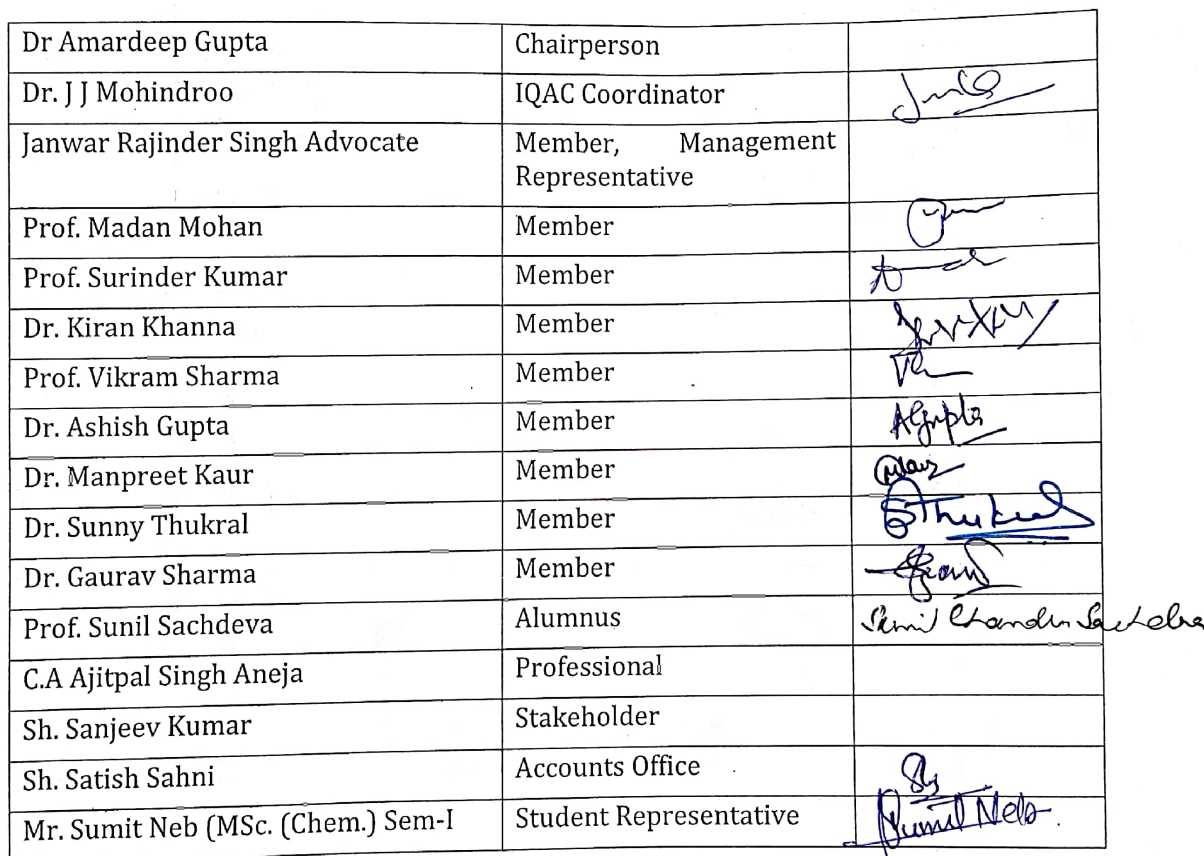 Dr Amardeep Gupta Chairperson
Dr. J J Mohindroo IQAC Coordinator
Janwar Rajinder Singh Advocate Member, Management
Representative
Prof. Madan Mohan Member
Prof. Surinder Kumar Member
Dr. Kiran Khanna Member
Prof. Vikram Sharma Member
Dr. Ashish Gupta Member AGupta
Dr. Manpreet Kaur Member
Dr. Sunny Thukral Member SThukral
Dr. Gaurav Sharma Member
Prof. Sunil Sachdeva Alumnus Sunil Chander Sachdeva
C.A Ajitpal Singh Aneja Professional
Sh. Sanjeev Kumar Stakeholder
Sh. Satish Sahni Accounts Office
Mr. Sumit Neb (MSc. (Chem.) Sem-I Student Representative Sumit Neb